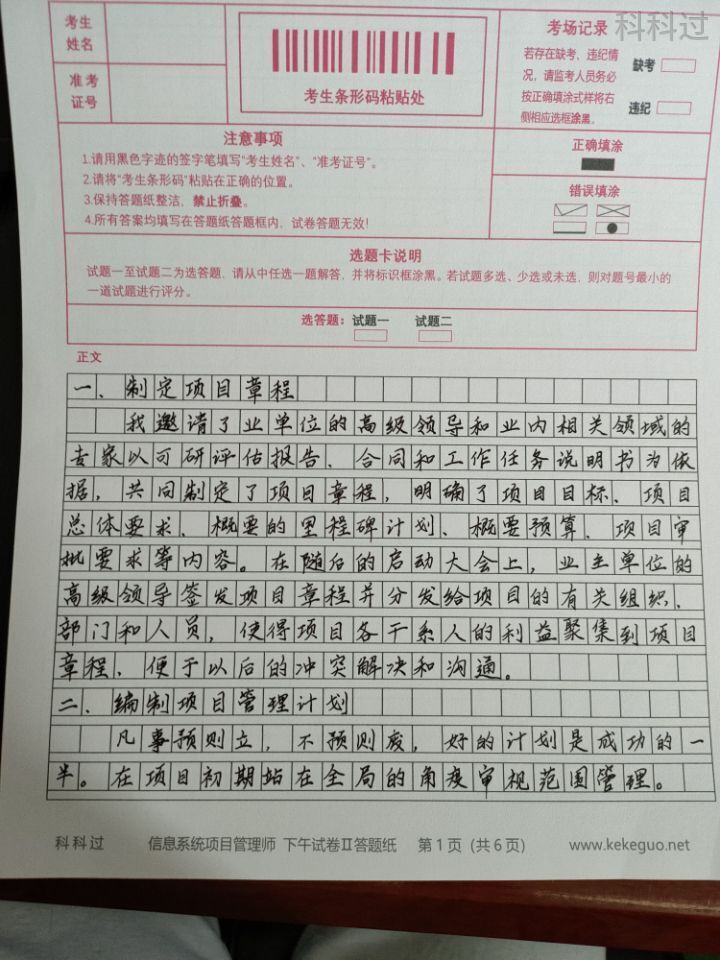 科科过
考生
姓名
准考
证号
考生条形码粘贴处
考场记录
若存在缺考、违纪情
况，请监考人员务必
按正确填涂式样将右
侧相应选框涂黑。
缺考
违纪
注意事项
1.请用黑色字迹的签字笔填写“考生姓名”、“准考证号”。
2.请将“考生条形码”粘贴在正确的位置。
3.保持答题纸整洁，禁止折叠。
4.所有答案均填写在答题纸答题框内，试卷答题无效!
正确填涂
错误填涂
选题卡说明
试题一至试题二为选答题，请从中任选一题解答，并将标识框涂黑。若试题多选、少选或未选，则对题号最小的
一道试题进行评分。
选答题： 试题一 试题二
正文
一、制定项目章程
我邀请了业单位的高级领导和业内相关领域的
专家以可研评估报告、合同和工作任务说明书为依
据，共同制定了项目章程，明确了项目目标、项目
总体要求、概要的里程碑计划、概要预算、项目审
批要求等内容。在随后的启动大会上，业主单位的
高级领导签发项目章程并分发给项目的有关组织、
部门和人员，使得项目各干系人的利益聚集到项目
章程、便于以后的冲突解决和沟通。
二、编制项目管理计划
凡事预则立，不预则废，好的计划是成功的一
半。在项目初期站在全局的角度审视范围管理。
科科过 信息系统项目管理师 下午试卷II答题纸 第1页（共6页） www.kekeguo.net